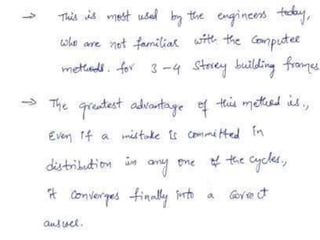 → This is most used by the engineers today,
who are not familiar with the Computer
methods. for 3-4 Storey building frames
→ The greatest advantage of this method is.,
Even if a mistake is committed in
distribution in any one of the cycles.,
it converges finally into a correct
answer.